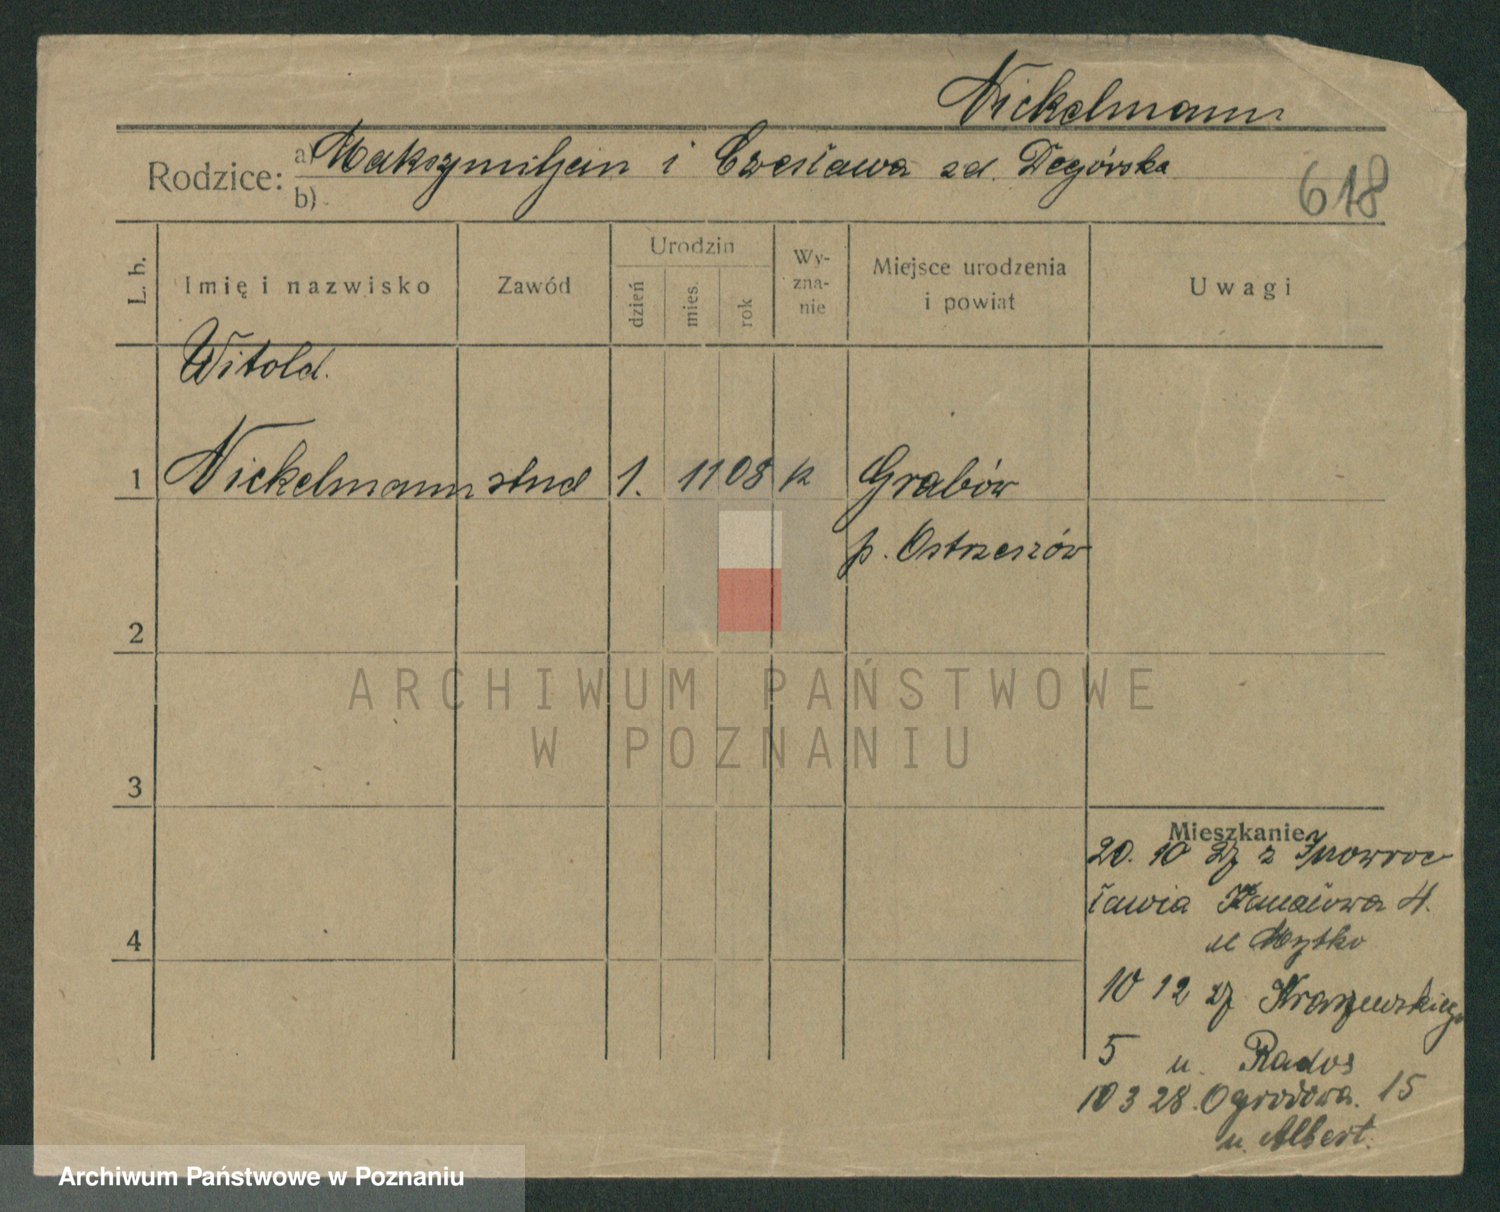 Nickelmann
Rodzice: a) Maksymiljan i Czesława zd. Degórska
b)
618
L. b.
Imię i nazwisko
Zawód
Urodzin
dzień
mies.
rok
Wy-
zna-
nie
Miejsce urodzenia
i powiat
Uwagi
Witold.
1 Nickelmann stud 1. 11 08 k Grabów
p. Ostrzeszów
2
3
4
Mieszkanie
20. 10 27 z Inowroc
ławia Kanałowa 4.
u
10 12 27 Kraszewskiego
5 u. Rados
10 3 28. Ogrodowa. 15
u. Albert.
ARCHIWUM PAŃSTWOWE
W POZNANIU
Archiwum Państwowe w Poznaniu